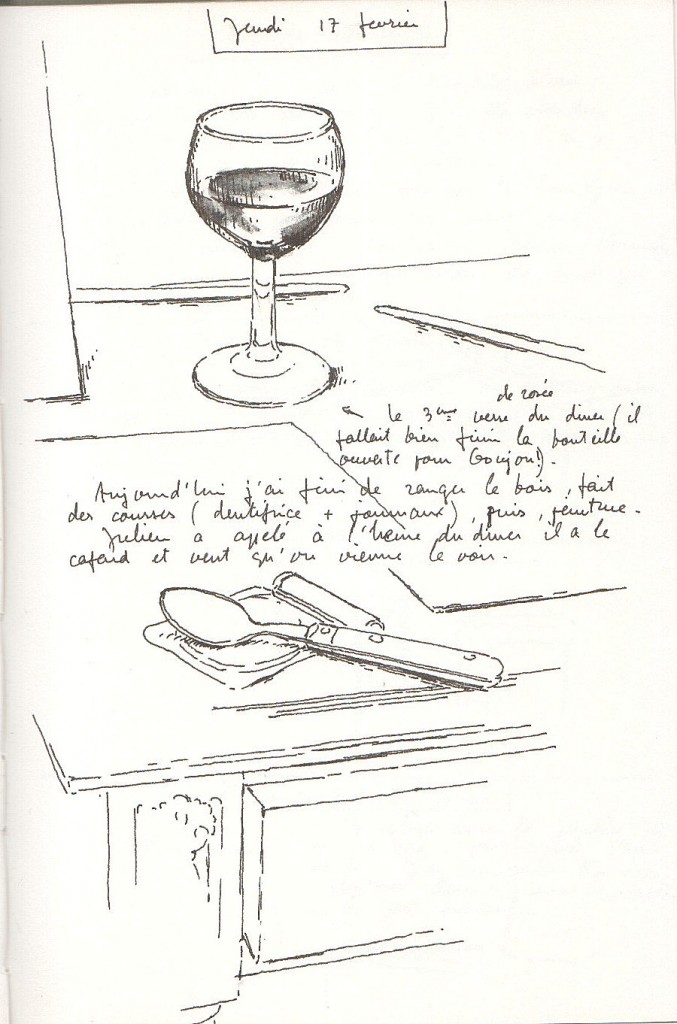 Jeudi 17 février
de rosée
le 3ème verre du diner (il
fallait bien finir la bouteille
ouverte pour Goujon!).
Aujourd'hui j'ai fini de ranger le bois, fait
des courses (dentifrice + journaux), puis, peinture.
Julien a appelé à l'heure du diner il a le
cafard et veut qu'on vienne le voir.